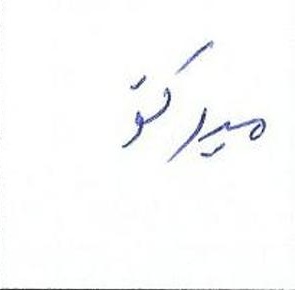 میرکتو